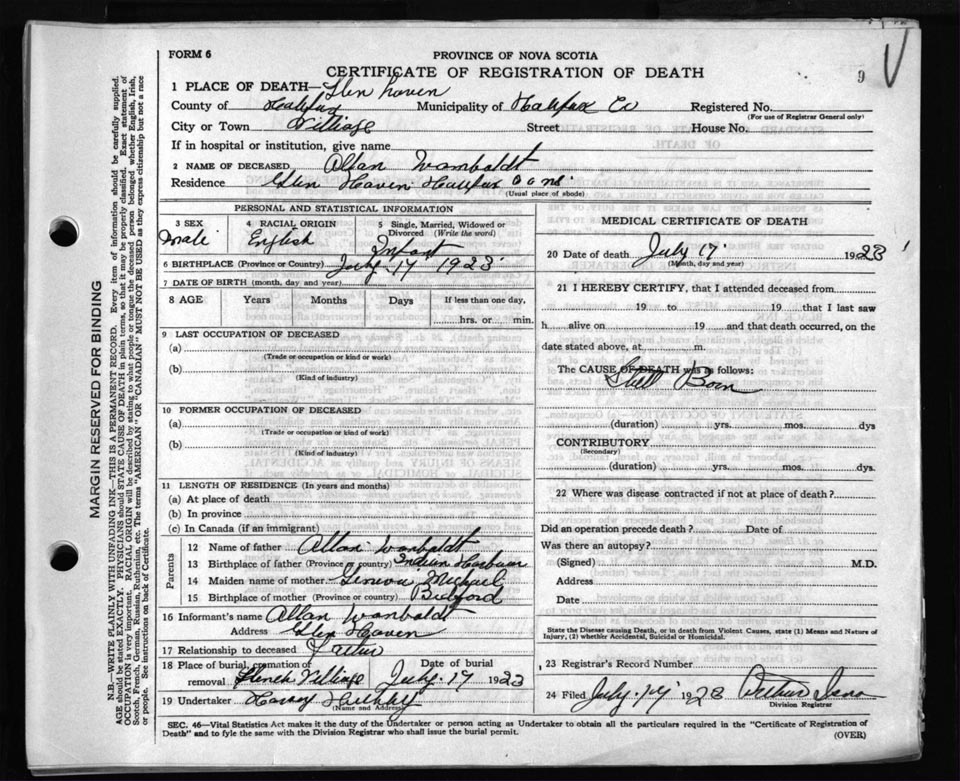 FORM 6
PROVINCE OF NOVA SCOTIA
CERTIFICATE OF REGISTRATION OF DEATH
9
1 PLACE OF DEATH—Glen Haven
County of Halifax Municipality of Halifax Co Registered No.
(For use of Registrar General only)
City or Town Village Street House No.
If in hospital or institution, give name
2 NAME OF DECEASED Allan Wambaldt
Residence Glen Haven Halifax
(Usual place of abode)
PERSONAL AND STATISTICAL INFORMATION
3 SEX Male
4 RACIAL ORIGIN English
5 Single, Married, Widowed or Divorced (Write the word) Infant
6 BIRTHPLACE (Province or Country) July 17 1923
7 DATE OF BIRTH (month, day, and year)
8 AGE Years Months Days If less than one day,
hrs. or min.
9 LAST OCCUPATION OF DECEASED
(a)
(Trade or occupation or kind or work)
(b)
(Kind of industry)
10 FORMER OCCUPATION OF DECEASED
(a)
(Trade or occupation or kind of work)
(b)
(Kind of industry)
11 LENGTH OF RESIDENCE (In years and months)
(a) At place of death
(b) In province
(c) In Canada (if an immigrant)
Parents
12 Name of father Allan Wanbaldt
13 Birthplace of father (Province or country) Indian Harbour
14 Maiden name of mother Geneva Michael
15 Birthplace of mother (Province or country) Bedford
16 Informant's name Allan Wanbaldt
Address Glen Haven
17 Relationship to deceased Father
18 Place of burial, cremation or removal French Village Date of burial July 17 1923
19 Undertaker Harry
(Name and Address)
MEDICAL CERTIFICATE OF DEATH
20 Date of death July 17 1923
(Month, day and year)
21 I HEREBY CERTIFY, that I attended deceased from
19 to 19 that I last saw
h alive on 19 and that death occurred, on the
date stated above, at m.
The CAUSE OF DEATH was as follows:
Still Born
(duration) yrs. mos. dys
CONTRIBUTORY
(Secondary)
(duration) yrs. mos. dys.
22 Where was disease contracted if not at place of death?
Did an operation precede death? Date of
Was there an autopsy?
(Signed) M.D.
Address
Date
State the Disease causing Death, or in death from Violent Causes, state (1) Means and Nature of
Injury, (2) whether Accidental, Suicidal or Homicidal.
23 Registrar's Record Number
24 Filed July 17 1923 Arthur
Division Registrar
SEC. 46—Vital Statistics Act makes it the duty of the Undertaker or person acting as Undertaker to obtain all the particulars required in the "Certificate of Registration of
Death" and to fyle the same with the Division Registrar who shall issue the burial permit.
(OVER)
MARGIN RESERVED FOR BINDING
N.B.—WRITE PLAINLY WITH UNFADING INK—THIS IS A PERMANENT RECORD. Every item of information should be carefully supplied.
AGE should be stated EXACTLY. PHYSICIANS should STATE CAUSE OF DEATH in plain terms, so that it may be properly classified. Exact statement of
OCCUPATION is very important. RACIAL ORIGIN will be described by stating to what people or tongue the deceased person belonged whether English, Irish,
Scotch, French, German, Russian, Ruthenian, etc. The terms "AMERICAN" OR "CANADIAN" MUST NOT BE USED as they express citizenship but not a race
or people. See instructions on back of Certificate.